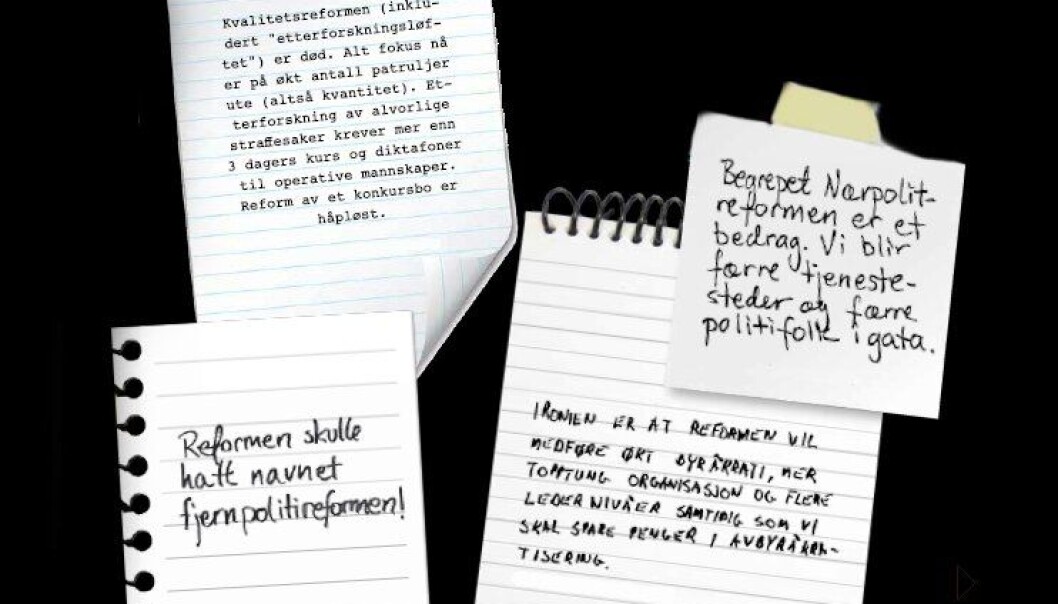 Kvalitetsreformen (inklu-
dert "etterforskningsløf-
tet") er død. Alt fokus nå
er på økt antall patruljer
ute (altså kvantitet). Et-
terforskning av alvorlige
straffesaker krever mer enn
3 dagers kurs og diktafoner
til operative mannskaper.
Reform av et konkursbo er
håpløst.
Begrepet Nærpolit-
reformen er et
bedrag. Vi blir
færre tjeneste-
steder og færre
politifolk i gata.
Reformen skulle
hatt navnet
fjernpolitireformen!
IRONIEN ER AT REFORMEN VIL
MEDFØRE ØKT BYRÅKRATI, MER
TOPPTUNG ORGANISASJON OG FLERE
LEDERNIVÅER SAMTIDIG SOM VI
SKAL SPARE PENGER I AVBYRÅKRA-
TISERING.